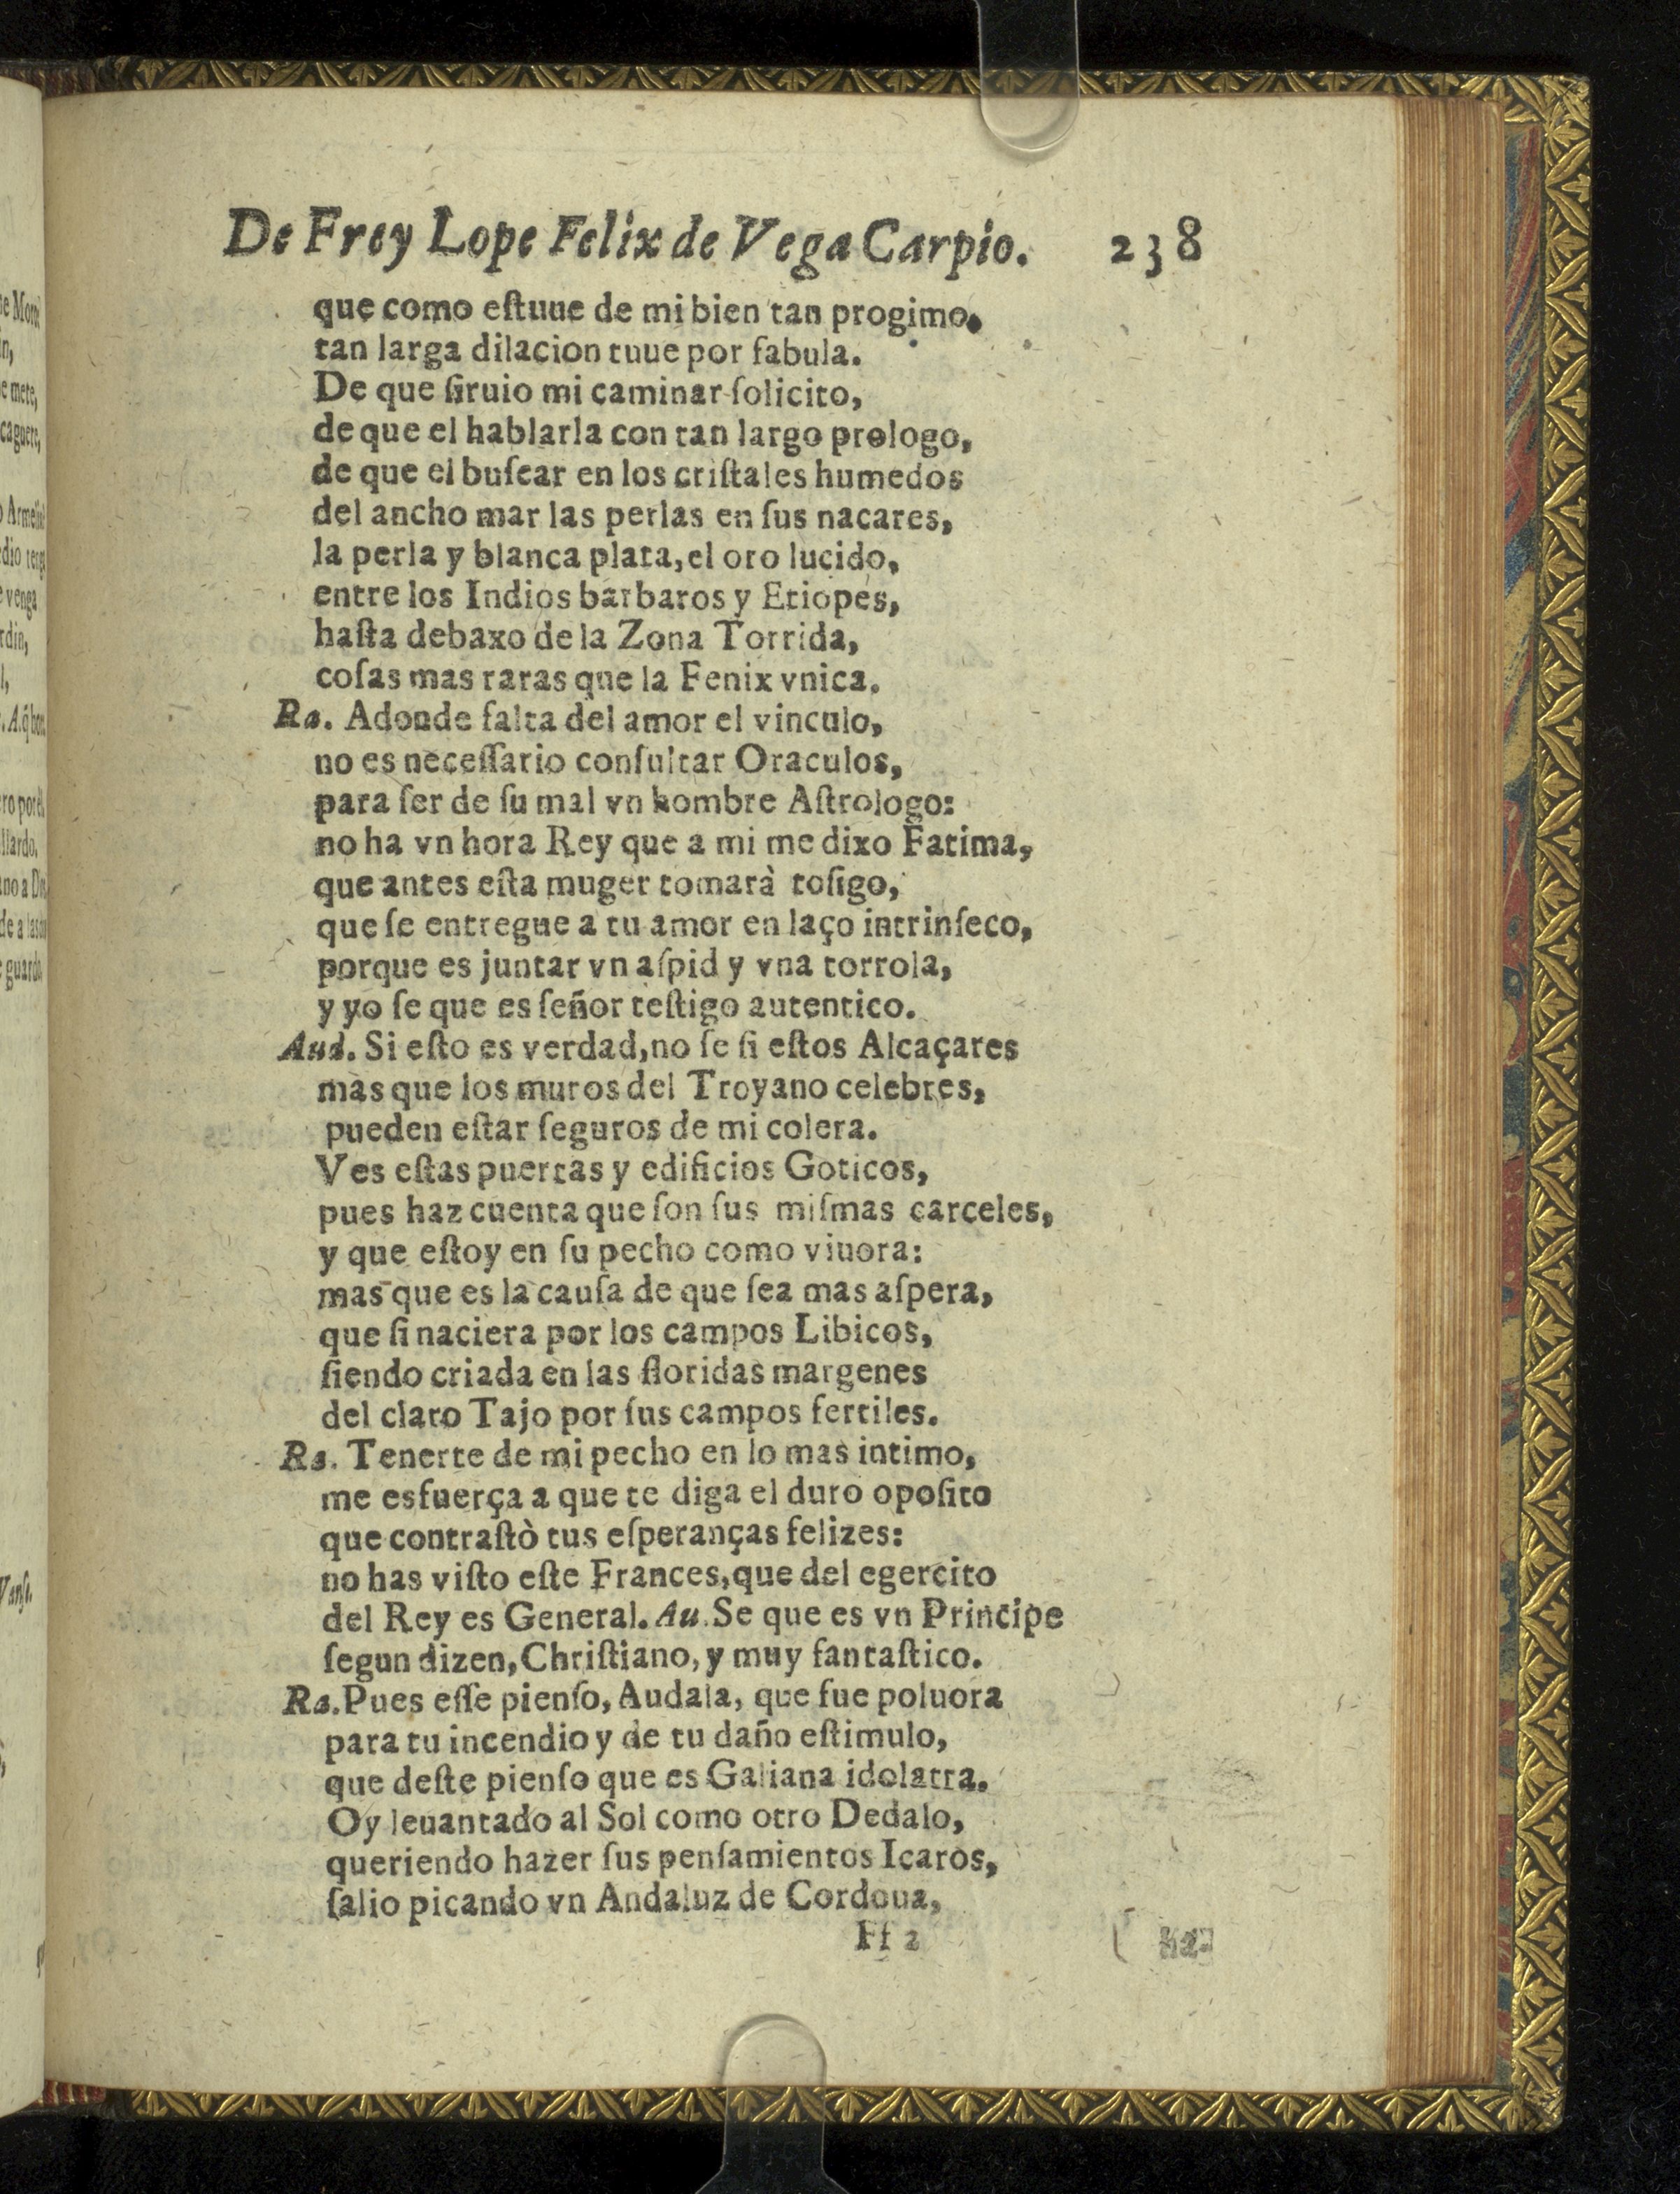 De Frey Lope Felix de Vega Carpio. 238
que como eſtuue de mi bien tan progimo.
tan larga dilacion tuue por fabula.
De que ſiruio mi caminar ſolicito,
de que el hablarla con tan largo prologo,
de que el buſear en los criſtales humedos
del ancho mar las perlas en ſus nacares,
la perla y blanca plata, el oro lucido,
entre los Indios barbaros y Etiopes,
haſta debaxo de la Zona Torrida,
coſas mas raras que la Fenix vnica.
Ra. Adonde falta del amor el vinculo,
no es neceſſario conſultar Oraculos,
para ſer de ſu mal vn hombre Aſtrologo:
no ha vn hora Rey que a mi me dixo Fatima,
que antes eſta muger tomarà toſigo,
que ſe entregue a tu amor en laço intrinſeco,
porque es juntar vn aſpid y vna torrola,
y yo ſe que es ſeñor teſtigo autentico.
Aud. Si eſto es verdad, no ſe ſi eſtos Alcaçares
mas que los muros del Troyano celebres,
pueden eſtar ſeguros de mi colera.
Ves eſtas puertas y edificios Goticos,
pues haz cuenta que ſon ſus miſmas carceles,
y que eſtoy en ſu pecho como viuora:
mas que es la cauſa de que ſea mas aſpera,
que ſi naciera por los campos Libicos,
ſiendo criada en las floridas margenes
del claro Tajo por ſus campos fertiles.
Ra. Tenerte de mi pecho en lo mas intimo,
me esfuerça a que te diga el duro opoſito
que contraſtò tus eſperanças felizes:
no has viſto eſte Frances, que del egercito
del Rey es General. Au. Se que es vn Principe
ſegun dizen, Chriſtiano, y muy fantaſtico.
Ra. Pues eſſe pienſo, Audala, que fue poluora
para tu incendio y de tu daño eſtimulo,
que deſte pienſo que es Galiana idolatra.
Oy leuantado al Sol como otro Dedalo,
queriendo hazer ſus penſamientos Icaros,
ſalio picando vn Andaluz de Cordoua,
Ff 2